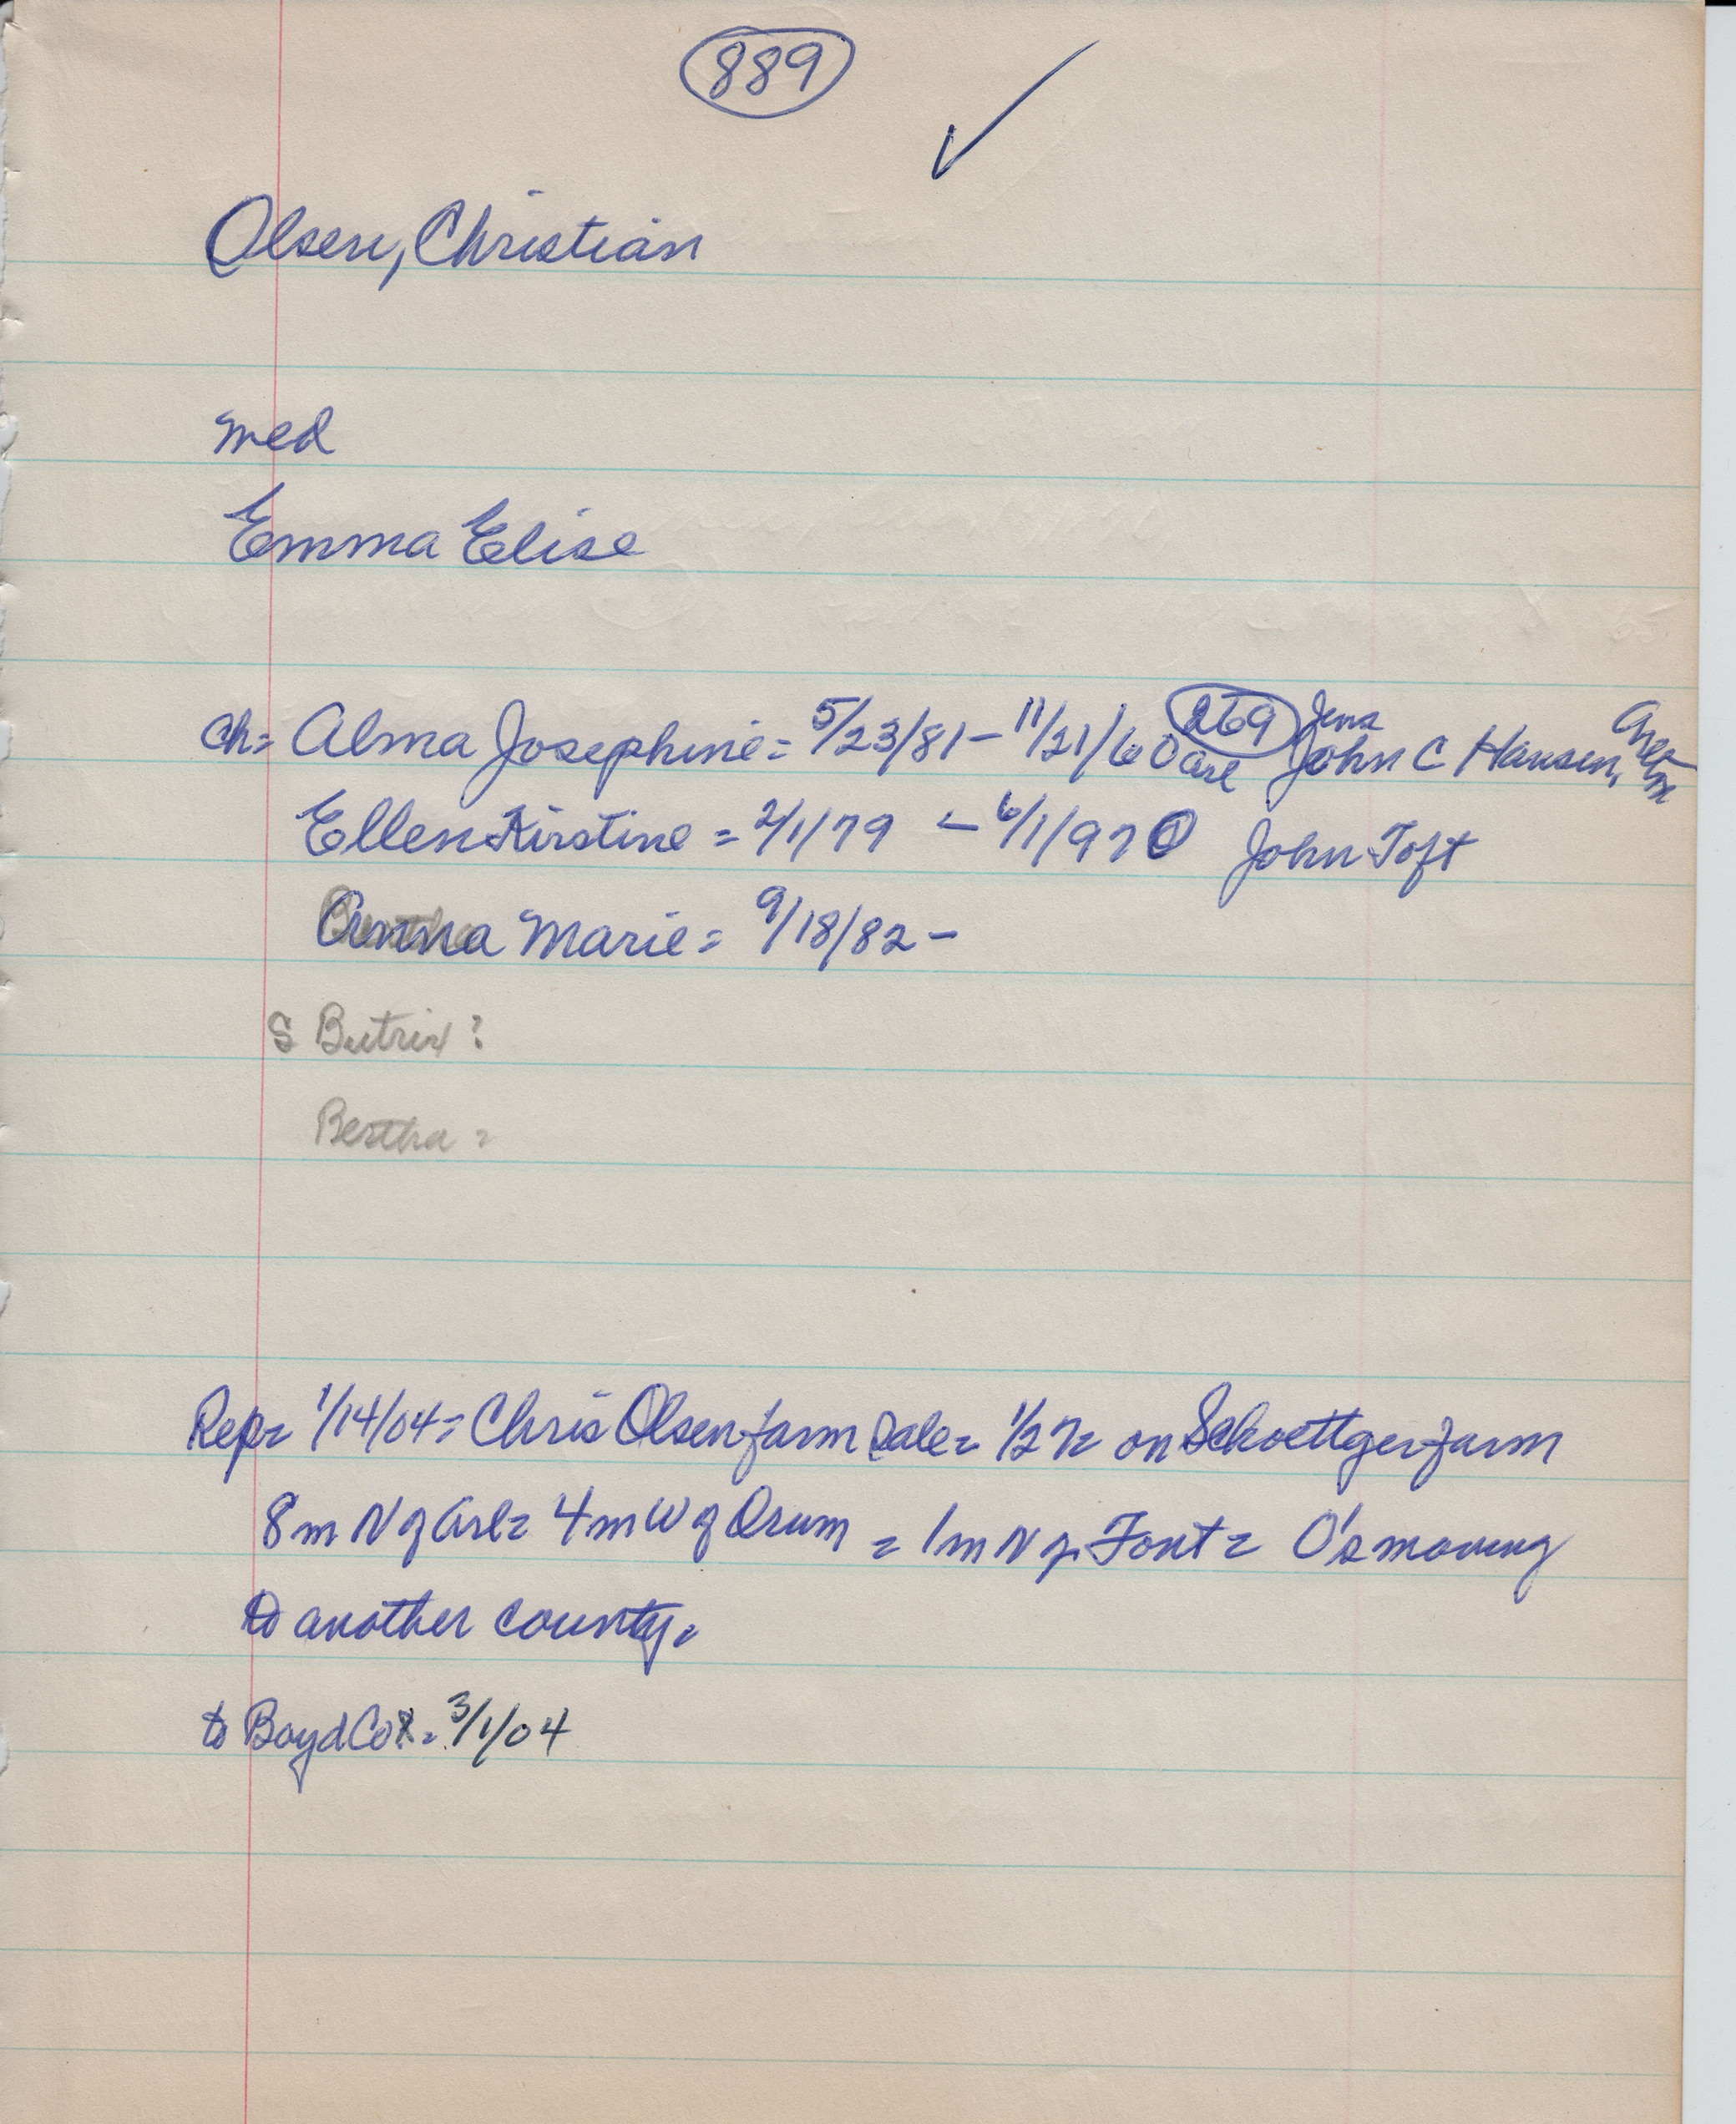 889 ✓
Olsen, Christian
med
Emma Elise
ch= Alma Josephine = 5/23/81 - 11/21/60 269 Jens John C Hansen,
Ellen Kirstine = 2/1/79 - 6/1/97 John Toft
Anna Marie = 9/18/82 -
S Butrix?
Bertha =
Rep= 1/14/04= Chris Olsen farm sale= on Schoettger farm
8m N of Arl= 4m W of Orum = 1m N of Font= O's moving
to another county.
to Boyd Co = 3/1/04